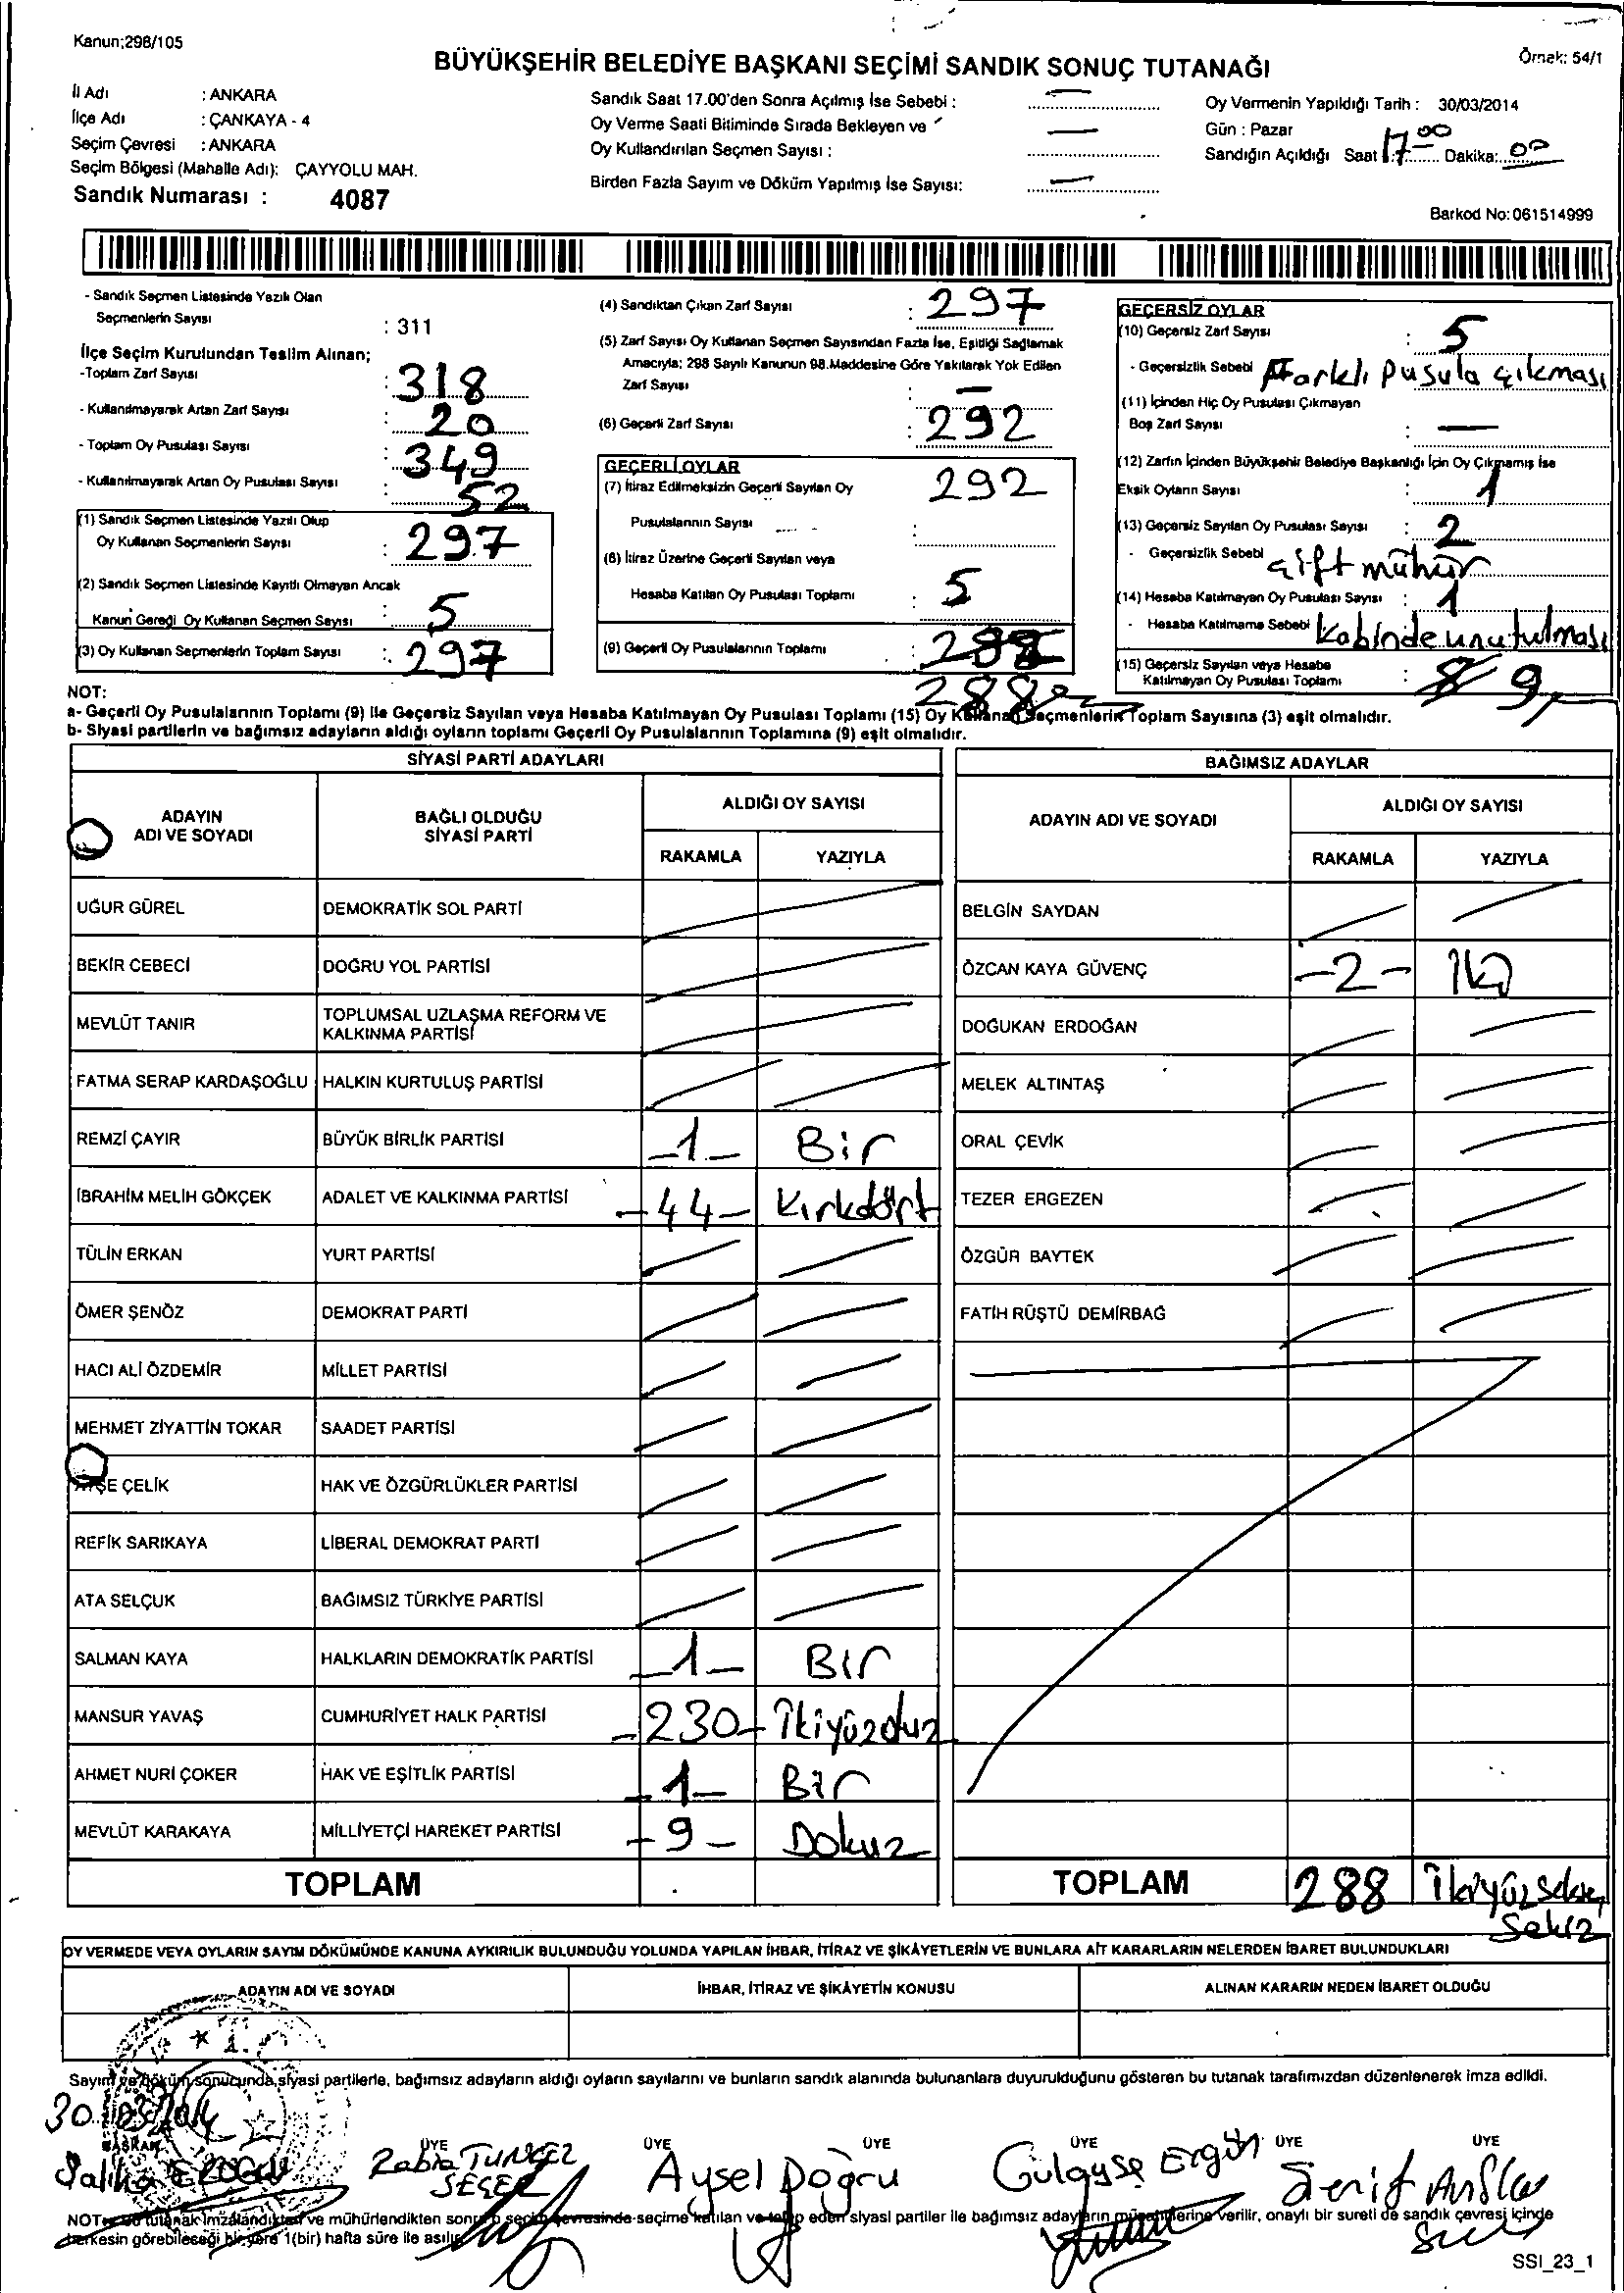 Kanun;298/105
Örnek: 54/1
BÜYÜKŞEHİR BELEDİYE BAŞKANI SEÇİMİ SANDIK SONUÇ TUTANAĞI
İl Adı : ANKARA
İlçe Adı : ÇANKAYA - 4
Seçim Çevresi : ANKARA
Seçim Bölgesi (Mahalle Adı): ÇAYYOLU MAH.
Sandık Numarası : 4087
Sandık Saat 17.00'den Sonra Açılmış İse Sebebi : —
Oy Verme Saati Bitiminde Sırada Bekleyen ve
Oy Kullandırılan Seçmen Sayısı : —
Birden Fazla Sayım ve Döküm Yapılmış İse Sayısı: —
Oy Vermenin Yapıldığı Tarih : 30/03/2014
Gün : Pazar
Sandığın Açıldığı Saat : 17 00 Dakika: 00
Barkod No: 061514999
- Sandık Seçmen Listesinde Yazılı Olan
Seçmenlerin Sayısı : 311
İlçe Seçim Kurulundan Teslim Alınan;
-Toplam Zarf Sayısı : 318
- Kullanılmayarak Artan Zarf Sayısı : 20
- Toplam Oy Pusulası Sayısı : 349
- Kullanılmayarak Artan Oy Pusulası Sayısı : 52
(1) Sandık Seçmen Listesinde Yazılı Olup
Oy Kullanan Seçmenlerin Sayısı : 297
(2) Sandık Seçmen Listesinde Kayıtlı Olmayan Ancak
Kanun Gereği Oy Kullanan Seçmen Sayısı : 5
(3) Oy Kullanan Seçmenlerin Toplam Sayısı : 297
(4) Sandıktan Çıkan Zarf Sayısı : 297
(5) Zarf Sayısı Oy Kullanan Seçmen Sayısından Fazla İse, Eşitliği Sağlamak
Amacıyla; 298 Sayılı Kanunun 98.Maddesine Göre Yakılarak Yok Edilen
Zarf Sayısı : —
(6) Geçerli Zarf Sayısı : 292
GEÇERLİ OYLAR
(7) İtiraz Edilmeksizin Geçerli Sayılan Oy
Pusulalarının Sayısı : 292
(8) İtiraz Üzerine Geçerli Sayılan veya
Hesaba Katılan Oy Pusulası Toplamı : 5
(9) Geçerli Oy Pusulalarının Toplamı :
288
GEÇERSİZ OYLAR
(10) Geçersiz Zarf Sayısı : 5
- Geçersizlik Sebebi Farklı pusula çıkması
(11) İçinden Hiç Oy Pusulası Çıkmayan
Boş Zarf Sayısı : —
(12) Zarfın İçinden Büyükşehir Belediye Başkanlığı İçin Oy Çıkmamış İse
Eksik Oyların Sayısı : 1
(13) Geçersiz Sayılan Oy Pusulası Sayısı : 2
- Geçersizlik Sebebi çift mühür
(14) Hesaba Katılmayan Oy Pusulası Sayısı : 1
- Hesaba Katılmama Sebebi Kabinde unutulması
(15) Geçersiz Sayılan veya Hesaba
Katılmayan Oy Pusulası Toplamı : 8 9
NOT:
a- Geçerli Oy Pusulalarının Toplamı (9) ile Geçersiz Sayılan veya Hesaba Katılmayan Oy Pusulası Toplamı (15) Oy Kullanan Seçmenlerin Toplam Sayısına (3) eşit olmalıdır.
b- Siyasi partilerin ve bağımsız adayların aldığı oyların toplamı Geçerli Oy Pusulalarının Toplamına (9) eşit olmalıdır.
SİYASİ PARTİ ADAYLARI
ADAYIN ADI VE SOYADI BAĞLI OLDUĞU SİYASİ PARTİ ALDIĞI OY SAYISI
RAKAMLA YAZIYLA
UĞUR GÜREL DEMOKRATİK SOL PARTİ
BEKİR CEBECİ DOĞRU YOL PARTİSİ
MEVLÜT TANIR TOPLUMSAL UZLAŞMA REFORM VE KALKINMA PARTİSİ
FATMA SERAP KARDAŞOĞLU HALKIN KURTULUŞ PARTİSİ
REMZİ ÇAYIR BÜYÜK BİRLİK PARTİSİ -1- Bir
İBRAHİM MELİH GÖKÇEK ADALET VE KALKINMA PARTİSİ -44- Kırkdört
TÜLİN ERKAN YURT PARTİSİ
ÖMER ŞENÖZ DEMOKRAT PARTİ
HACI ALİ ÖZDEMİR MİLLET PARTİSİ
MEHMET ZİYATTİN TOKAR SAADET PARTİSİ
ÇELİK HAK VE ÖZGÜRLÜKLER PARTİSİ
REFİK SARIKAYA LİBERAL DEMOKRAT PARTİ
ATA SELÇUK BAĞIMSIZ TÜRKİYE PARTİSİ
SALMAN KAYA HALKLARIN DEMOKRATİK PARTİSİ -1- Bir
MANSUR YAVAŞ CUMHURİYET HALK PARTİSİ -230- İkiyüzotuz
AHMET NURİ ÇOKER HAK VE EŞİTLİK PARTİSİ -1- Bir
MEVLÜT KARAKAYA MİLLİYETÇİ HAREKET PARTİSİ -9- Dokuz
TOPLAM
BAĞIMSIZ ADAYLAR
ADAYIN ADI VE SOYADI ALDIĞI OY SAYISI
RAKAMLA YAZIYLA
BELGİN SAYDAN
ÖZCAN KAYA GÜVENÇ -2- İki
DOĞUKAN ERDOĞAN
MELEK ALTINTAŞ
ORAL ÇEVİK
TEZER ERGEZEN
ÖZGÜR BAYTEK
FATİH RÜŞTÜ DEMİRBAĞ
TOPLAM 288 İkiyüzseksen
Sekiz
OY VERMEDE VEYA OYLARIN SAYIM DÖKÜMÜNDE KANUNA AYKIRILIK BULUNDUĞU YOLUNDA YAPILAN İHBAR, İTİRAZ VE ŞİKÂYETLERİN VE BUNLARA AİT KARARLARIN NELERDEN İBARET BULUNDUKLARI
ADAYIN ADI VE SOYADI İHBAR, İTİRAZ VE ŞİKÂYETİN KONUSU ALINAN KARARIN NEDEN İBARET OLDUĞU
Sayım ve döküm sonucunda siyasi partilerle, bağımsız adayların aldığı oyların sayılarını ve bunların sandık alanında bulunanlara duyurulduğunu gösteren bu tutanak tarafımızdan düzenlenerek imza edildi.
30.03.2014
BAŞKAN ÜYE ÜYE ÜYE ÜYE ÜYE ÜYE
Saliha Rabia TUNCEL Aysel Doğru Gülayşe Ergün Şerif Arslan
SEÇER
NOT: Bu tutanak imzalandıktan ve mühürlendikten sonra o seçim çevresinde seçime katılan ve talep eden siyasi partiler ile bağımsız adayların müşahitlerine verilir, onaylı bir sureti de sandık çevresi içinde
herkesin görebileceği bir yere 1(bir) hafta süre ile asılır.
SSI_23_1